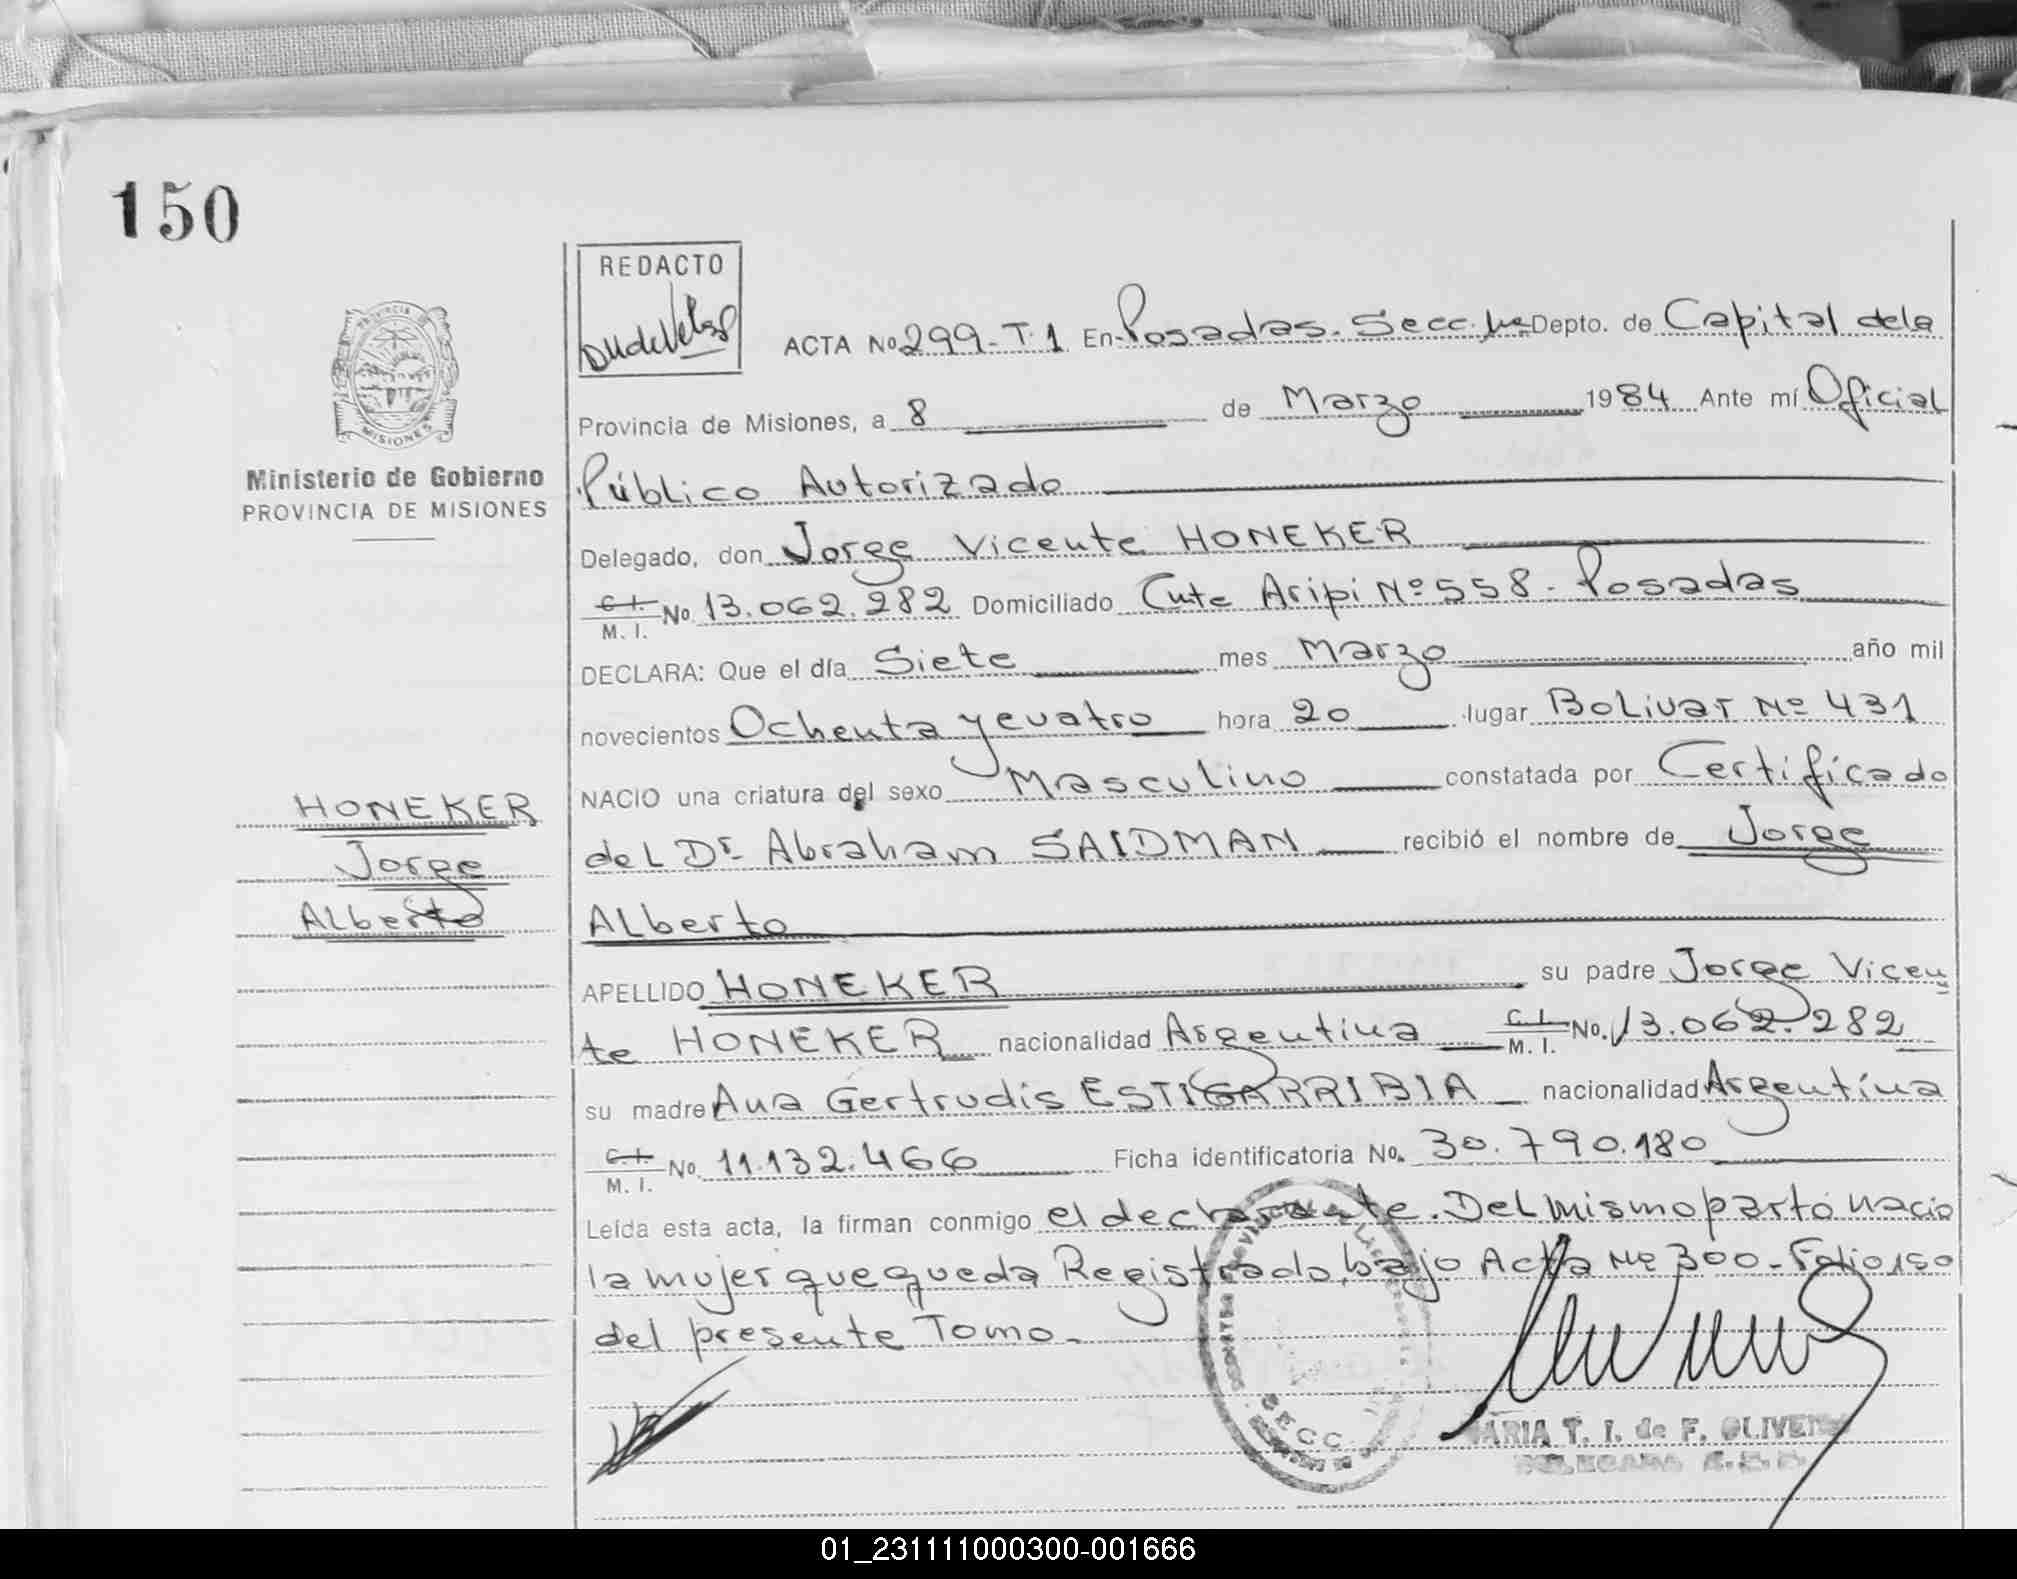 150
REDACTO
PROVINCIA DE
MISIONES
Ministerio de Gobierno
PROVINCIA DE MISIONES
ACTA No 299-T.1 En Posadas. Secc. 1ra Depto. de Capital de la
Provincia de Misiones, a 8 de Marzo 1984 Ante mí Oficial
Público Autorizado
Delegado, don Jorge Vicente HONEKER
C.I. M.I. No. 13.062.282 Domiciliado Cnte Aripi Nº 558 - Posadas
DECLARA: Que el día Siete mes Marzo año mil
novecientos Ochenta y cuatro hora 20 lugar Bolivar Nº 431
NACIO una criatura del sexo Masculino constatada por Certificado
del Dr. Abraham SAIDMAN recibió el nombre de Jorge
Alberto
APELLIDO HONEKER su padre Jorge Vicen
te HONEKER nacionalidad Argentina C.I. M.I. No. 13.062.282
su madre Ana Gertrudis ESTIGARRIBIA nacionalidad Argentina
C.I. M.I. No. 11.132.466 Ficha identificatoria No. 30.790.180
Leída esta acta, la firman conmigo el declarante. Del mismo parto nacio
la mujer que queda Registrado, bajo Acta Nº 300 - Folio 150
del presente Tomo -
HONEKER
Jorge
Alberto
SECC.
MARIA T. I. de F. OLIVEIRA
DELEGADA
01_231111000300-001666